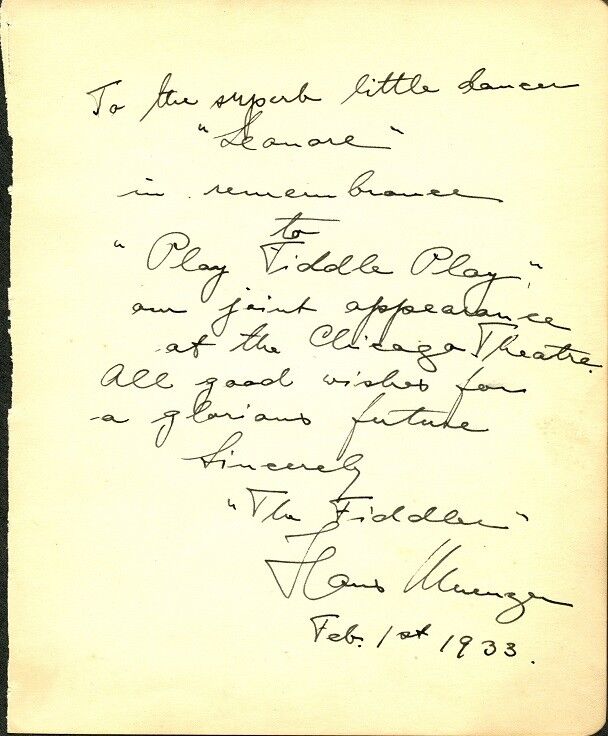 To the superb little dancer
"Leanore"
in remembrance
to
"Play Fiddle Play",
our joint appearance
at the Chicago Theatre.
All good wishes for
a glorious future
Sincerely
"The Fiddler"
Hans Muenzer
Feb. 1st 1933.